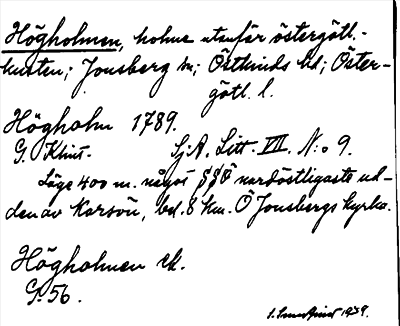 Högholmen, holme utanför östergötl.-
kusten; Jonsberg sn; Östkinds hd; Öster-
götl. l.
Högholm 1789.
G. Klint. SjA. Litt. VII. N:o 9.
Läge 400 m. något SSÖ nordöstligaste ud-
den av Karsön, bel. 8 km. Ö Jonsbergs kyrka.
Högholmen ek.
G. 56.
1939.